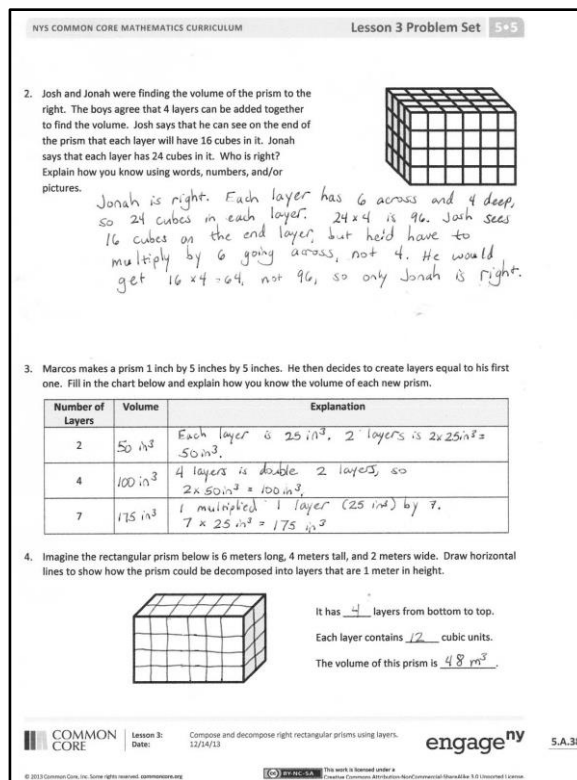 NYS COMMON CORE MATHEMATICS CURRICULUM
Lesson 3 Problem Set
5•5
2. Josh and Jonah were finding the volume of the prism to the
right. The boys agree that 4 layers can be added together
to find the volume. Josh says that he can see on the end of
the prism that each layer will have 16 cubes in it. Jonah
says that each layer has 24 cubes in it. Who is right?
Explain how you know using words, numbers, and/or
pictures.
Jonah is right. Each layer has 6 across and 4 deep,
so 24 cubes in each layer. 24 x 4 is 96. Josh sees
16 cubes on the end layer, but he'd have to
multiply by 6 going across, not 4. He would
get 16 x 4 = 64, not 96, so only Jonah is right.
3. Marcos makes a prism 1 inch by 5 inches by 5 inches. He then decides to create layers equal to his first
one. Fill in the chart below and explain how you know the volume of each new prism.
Number of
Layers
Volume
Explanation
2
50 in³
Each layer is 25 in³. 2 layers is 2x25in³=
50in³.
4
100 in³
4 layers is double 2 layers, so
2 x 50in³ = 100in³.
7
175 in³
I multiplied 1 layer (25 in³) by 7.
7 x 25 in³ = 175 in³
4. Imagine the rectangular prism below is 6 meters long, 4 meters tall, and 2 meters wide. Draw horizontal
lines to show how the prism could be decomposed into layers that are 1 meter in height.
It has 4 layers from bottom to top.
Each layer contains 12 cubic units.
The volume of this prism is 48 m³.
COMMON
CORE
Lesson 3:
Date:
Compose and decompose right rectangular prisms using layers.
12/14/13
engageny
5.A.38
© 2013 Common Core, Inc. Some rights reserved. commoncore.org
CC BY-NC-SA
This work is licensed under a
Creative Commons Attribution-NonCommercial-ShareAlike 3.0 Unported License.